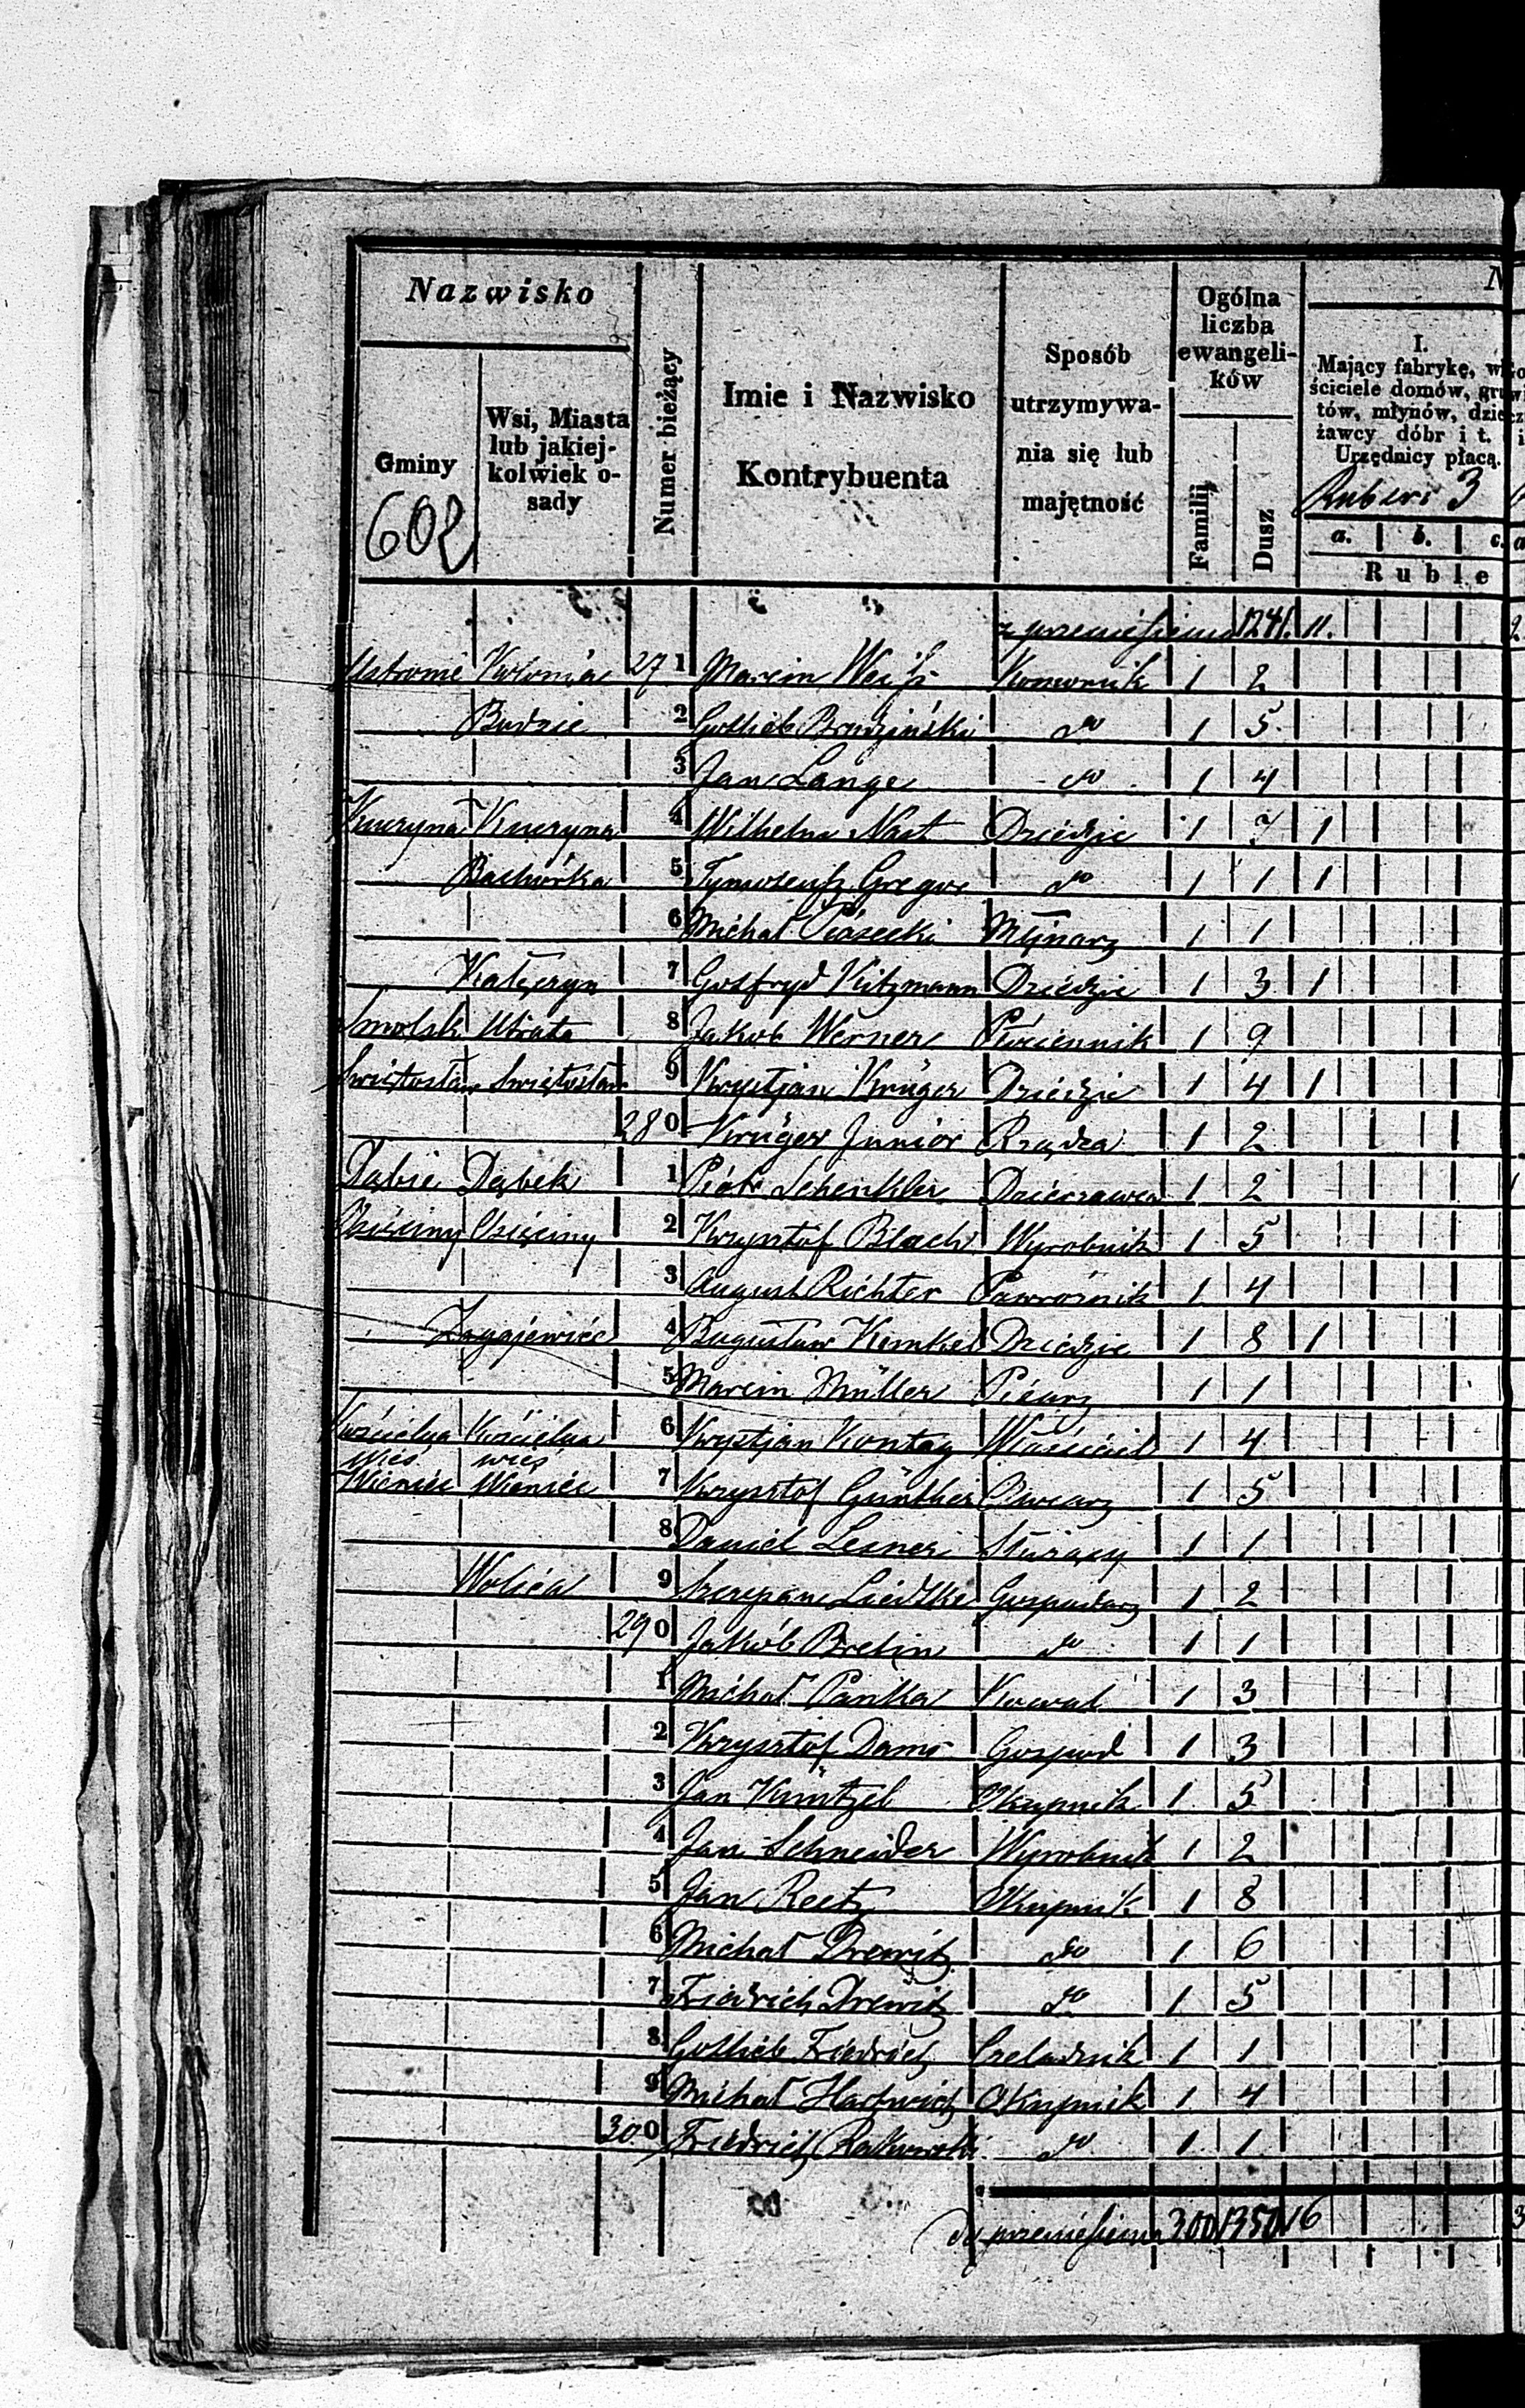 Nazwisko
Gminy
602
Wsi, Miasta
lub jakiej-
kolwiek o-
sady
Numer bieżący
Imie i Nazwisko
Kontrybuenta
Sposób
utrzymywa-
nia się lub
majętność
Ogólna
liczba
ewangeli-
ków
Familij
Dusz
N
I.
Mający fabrykę, wło
ściciele domów, grun
tów, młynów, dzier
żawcy dóbr i t.
Urzędnicy płacą.
Rubsr 3
a. b. c.
Ruble
z przeniesienia 1241. 11.
Ustronie Kolonia 271 Marcin Weiss Komornik 1 2
Budzie 2 Gottlieb Brudziński do 1 5
3 Jan Lange do 1 4
Kuczyna Kuczyna 4 Wilhelm Nast Dziedzic 1 7 1
Bachórka 5 Gregor do 1 1 1
6 Michał Piasecki Młynarz 1 1
7 Gotfryd Kitzmann Dziedzic 1 3 1
Smólsk Utrata 8 Jakob Werner Płóciennik 1 9
Świętosław Świętosław 9 Krystjan Krüger Dziedzic 1 4 1
280 Krüger Junior Rządca 1 2
Dąbie Dąbek 1 Piotr Schenkler Dzierzawca 1 2
Osięciny Osięciny 2 Krzysztof Blach Wyrobnik 1 5
3 August Richter Powroźnik 1 4
Zagajewice 4 Bogusław Kunkel Dziedzic 1 8 1
5 Marcin Müller Pisarz 1 1
Kościelna wieś Kościelna wieś 6 Krystjan Kontag Właściciel 1 4
Wieniec Wieniec 7 Krzysztof Günther Owczarz 1 5
8 Daniel Lesner Służący 1 1
Wolica 9 Szczepan Liedtke Gospodarz 1 2
290 Jakób Bretin do 1 1
1 Michał Panka Kowal 1 3
2 Krzysztof Dams Gospod 1 3
3 Jan Küntzel Okupnik 1 5
4 Jan Schneider Wyrobnik 1 2
5 Jan Reetz Okupnik 1 8
6 Michał Drewitz do 1 6
7 Fridrich Drewitz do 1 5
8 Gottlieb Friedrich Czeladnik 1 1
9 Michał Hartwich Okupnik 1 4
300 Fridrich Rakowski do 1 1
do przeniesienia 300 1350 16